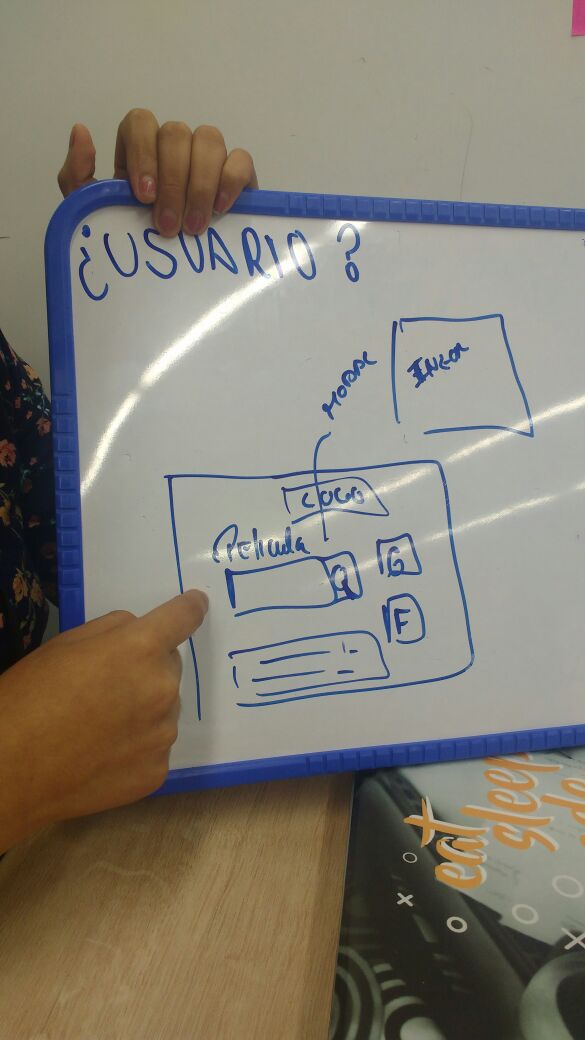 ¿USUARIO?
MODAL
LOGO
Pelicula
Q
G
F
eat
sleep